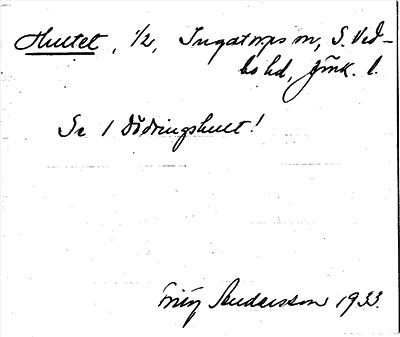 Hultet, 1/2, Ingatorps sn, S. Ved-
bo hd, Jönk. l.
Se 1 Dödringshult!
Fritz Andersson 1933.